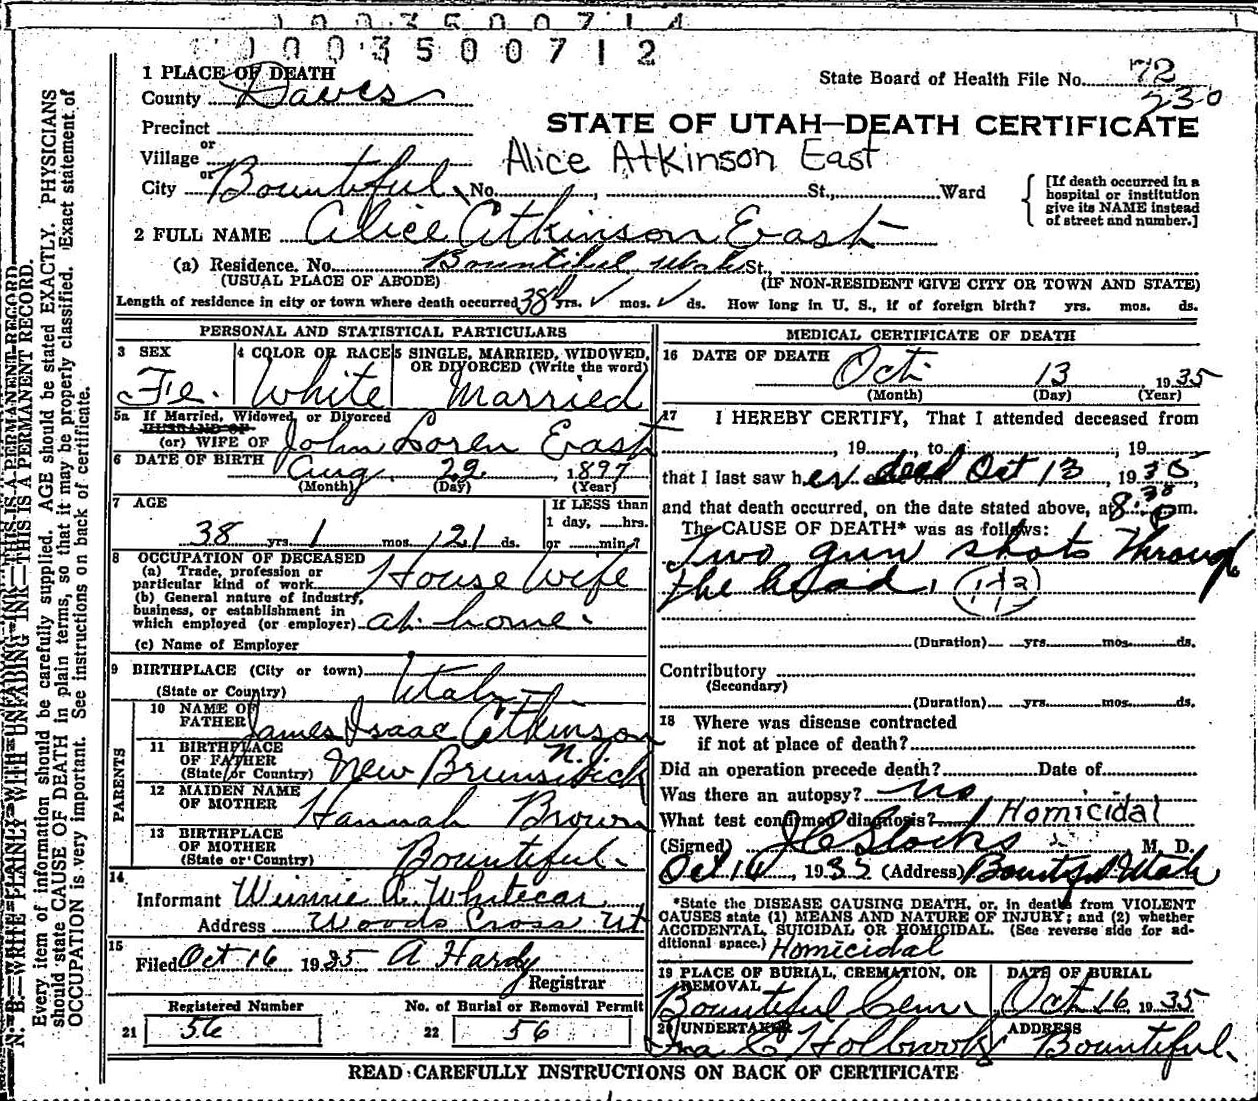 1 0 0 3 5 0 0 7 1 4
1 0 0 3 5 0 0 7 1 2
1 PLACE OF DEATH
County Davis
State Board of Health File No. 72
230
Precinct
or
Village
or
City Bountiful No. , St., Ward
STATE OF UTAH—DEATH CERTIFICATE
Alice Atkinson East
[If death occurred in a hospital or institution give its NAME instead of street and number.]
2 FULL NAME Alice Atkinson East
(a) Residence. No. Bountiful Utah St.,
(USUAL PLACE OF ABODE) (IF NON-RESIDENT GIVE CITY OR TOWN AND STATE)
Length of residence in city or town where death occurred 38 yrs. ✓ mos. ✓ ds. How long in U. S., if of foreign birth? yrs. mos. ds.
PERSONAL AND STATISTICAL PARTICULARS
3 SEX Fe.
4 COLOR OR RACE White
5 SINGLE, MARRIED, WIDOWED, OR DIVORCED (Write the word) Married
5a If Married, Widowed, or Divorced
HUSBAND OF
(or) WIFE OF John Loren East
6 DATE OF BIRTH Aug. 22 1897
(Month) (Day) (Year)
7 AGE
38 yrs. 1 mos. 21 ds.
If LESS than 1 day, hrs. or min.?
8 OCCUPATION OF DECEASED
(a) Trade, profession or particular kind of work House Wife
(b) General nature of Industry, business, or establishment in which employed (or employer) at home.
(c) Name of Employer
9 BIRTHPLACE (City or town)
(State or Country) Utah
PARENTS
10 NAME OF FATHER James Isaac Atkinson
11 BIRTHPLACE OF FATHER (State or Country) New Brunswick
12 MAIDEN NAME OF MOTHER Hannah Brown
13 BIRTHPLACE OF MOTHER (State or Country) Bountiful.
14
Informant Winnie A. Whitecar
Address Woods Cross Ut
15
Filed Oct 16 1935 A Hardy
Registrar
Registered Number
21 56
No. of Burial or Removal Permit
22 56
MEDICAL CERTIFICATE OF DEATH
16 DATE OF DEATH Oct. 13, 1935
(Month) (Day) (Year)
17 I HEREBY CERTIFY, That I attended deceased from
, 19 , to , 19
that I last saw her dead Oct 13, 1935,
and that death occurred, on the date stated above, at 8:30 p m.
The CAUSE OF DEATH* was as follows:
Two gun shots through
the head,
(Duration) yrs. mos. ds.
Contributory
(Secondary)
(Duration) yrs. mos. ds.
18 Where was disease contracted
if not at place of death?
Did an operation precede death? Date of
Was there an autopsy? no
What test confirmed diagnosis? Homicidal
(Signed) M. D.
Oct 14, 1935 (Address) Bountiful Utah
*State the DISEASE CAUSING DEATH, or, in deaths from VIOLENT
CAUSES state (1) MEANS AND NATURE OF INJURY; and (2) whether
ACCIDENTAL, SUICIDAL OR HOMICIDAL. (See reverse side for ad-
ditional space.) Homicidal
19 PLACE OF BURIAL, CREMATION, OR REMOVAL
Bountiful Cem
DATE OF BURIAL
Oct 16 1935
20 UNDERTAKER Ira C Holbrook
ADDRESS
Bountiful.
READ CAREFULLY INSTRUCTIONS ON BACK OF CERTIFICATE
N. B.—WRITE PLAINLY WITH UNFADING INK—THIS IS A PERMANENT RECORD.
Every item of information should be carefully supplied. AGE should be stated EXACTLY. PHYSICIANS
should state CAUSE OF DEATH in plain terms, so that it may be properly classified. Exact statement of
OCCUPATION is very important. See instructions on back of certificate.